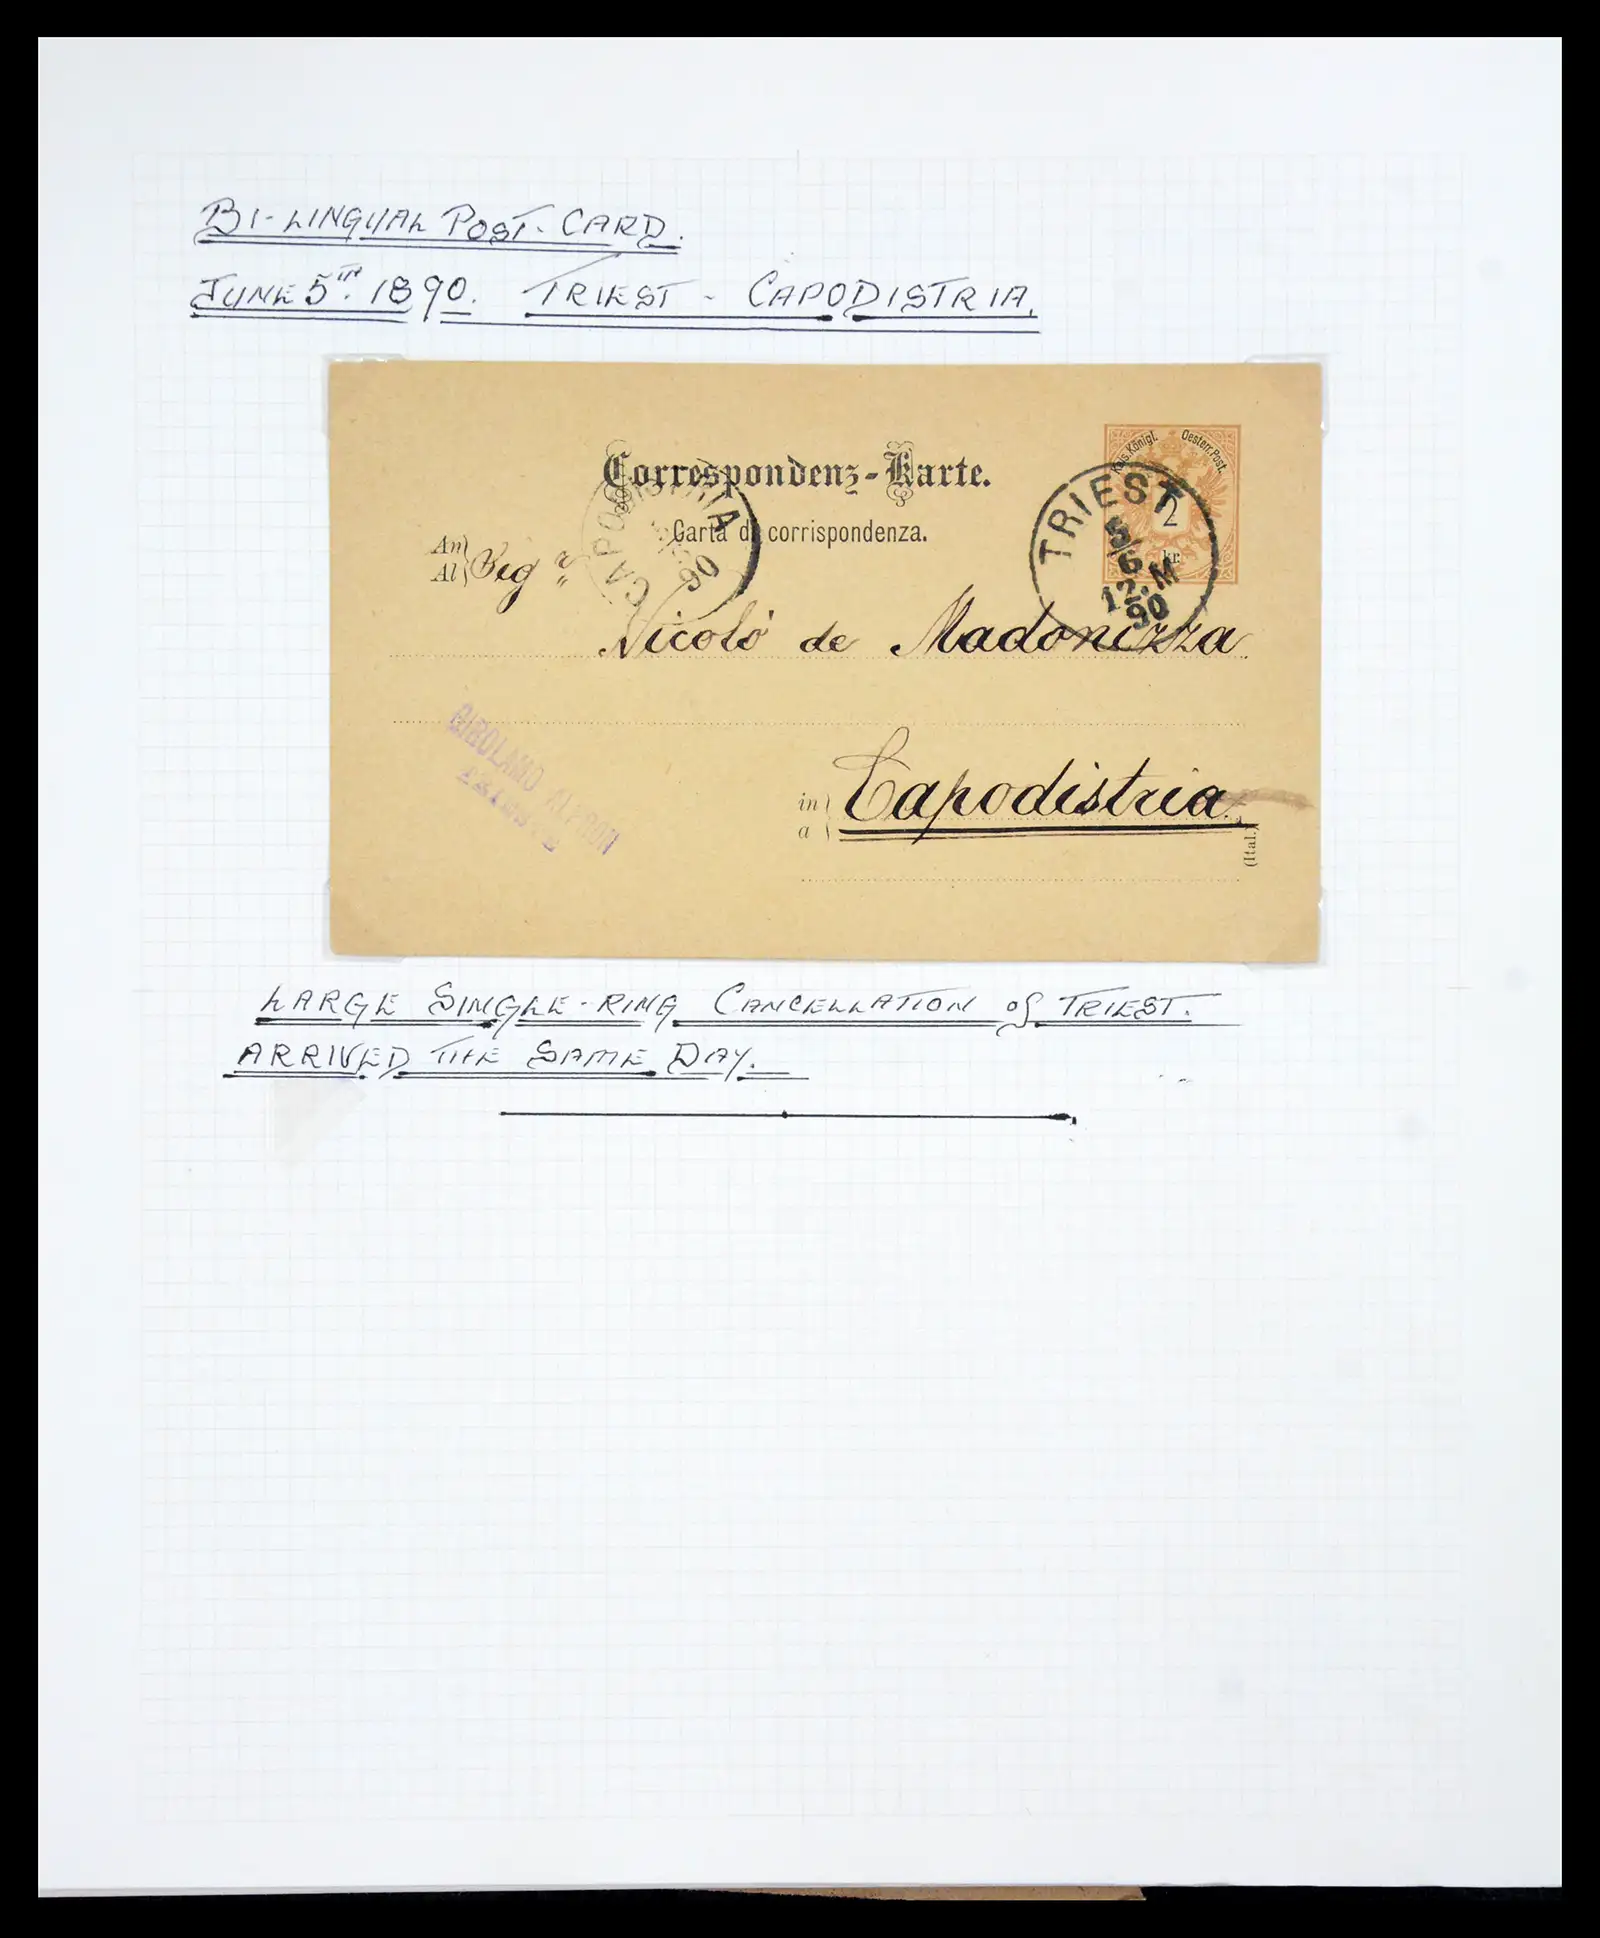 BI-LINGUAL POST-CARD.
JUNE 5TH. 1890. TRIEST - CAPODISTRIA.
Correspondenz-Karte.
Carta di corrispondenza.
Kais. Königl. Oesterr. Post.
2
kr.
TRIEST
5/6
12.M
90
CAPODISTRIA
90
An
Al
Sigr
Nicolò de Madonizza
GIROLAMO ALPRON
in
a
Capodistria.
(Ital.)
LARGE SINGLE-RING CANCELLATION of TRIEST.
ARRIVED THE SAME DAY.